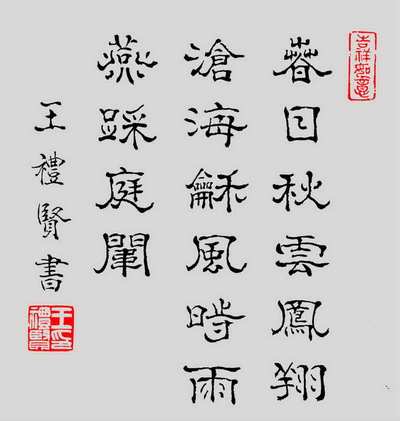 吉祥如意
春日秋雲鳳翔
滄海龢風時雨
燕踩庭闈
王禮賢書
王印禮賢